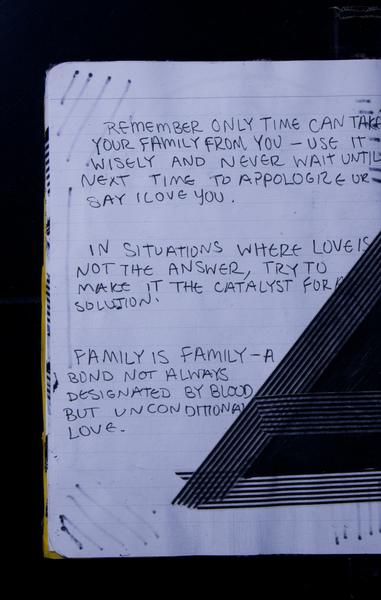 REMEMBER ONLY TIME CAN TAKE
YOUR FAMILY FROM YOU – USE IT
WISELY AND NEVER WAIT UNTIL
NEXT TIME TO APPOLOGIZE OR
SAY I LOVE YOU.
IN SITUATIONS WHERE LOVE IS
NOT THE ANSWER, TRY TO
MAKE IT THE CATALYST FOR
SOLUTION.
FAMILY IS FAMILY – A
BOND NOT ALWAYS
DESIGNATED BY BLOOD
BUT UNCONDITIONAL
LOVE.